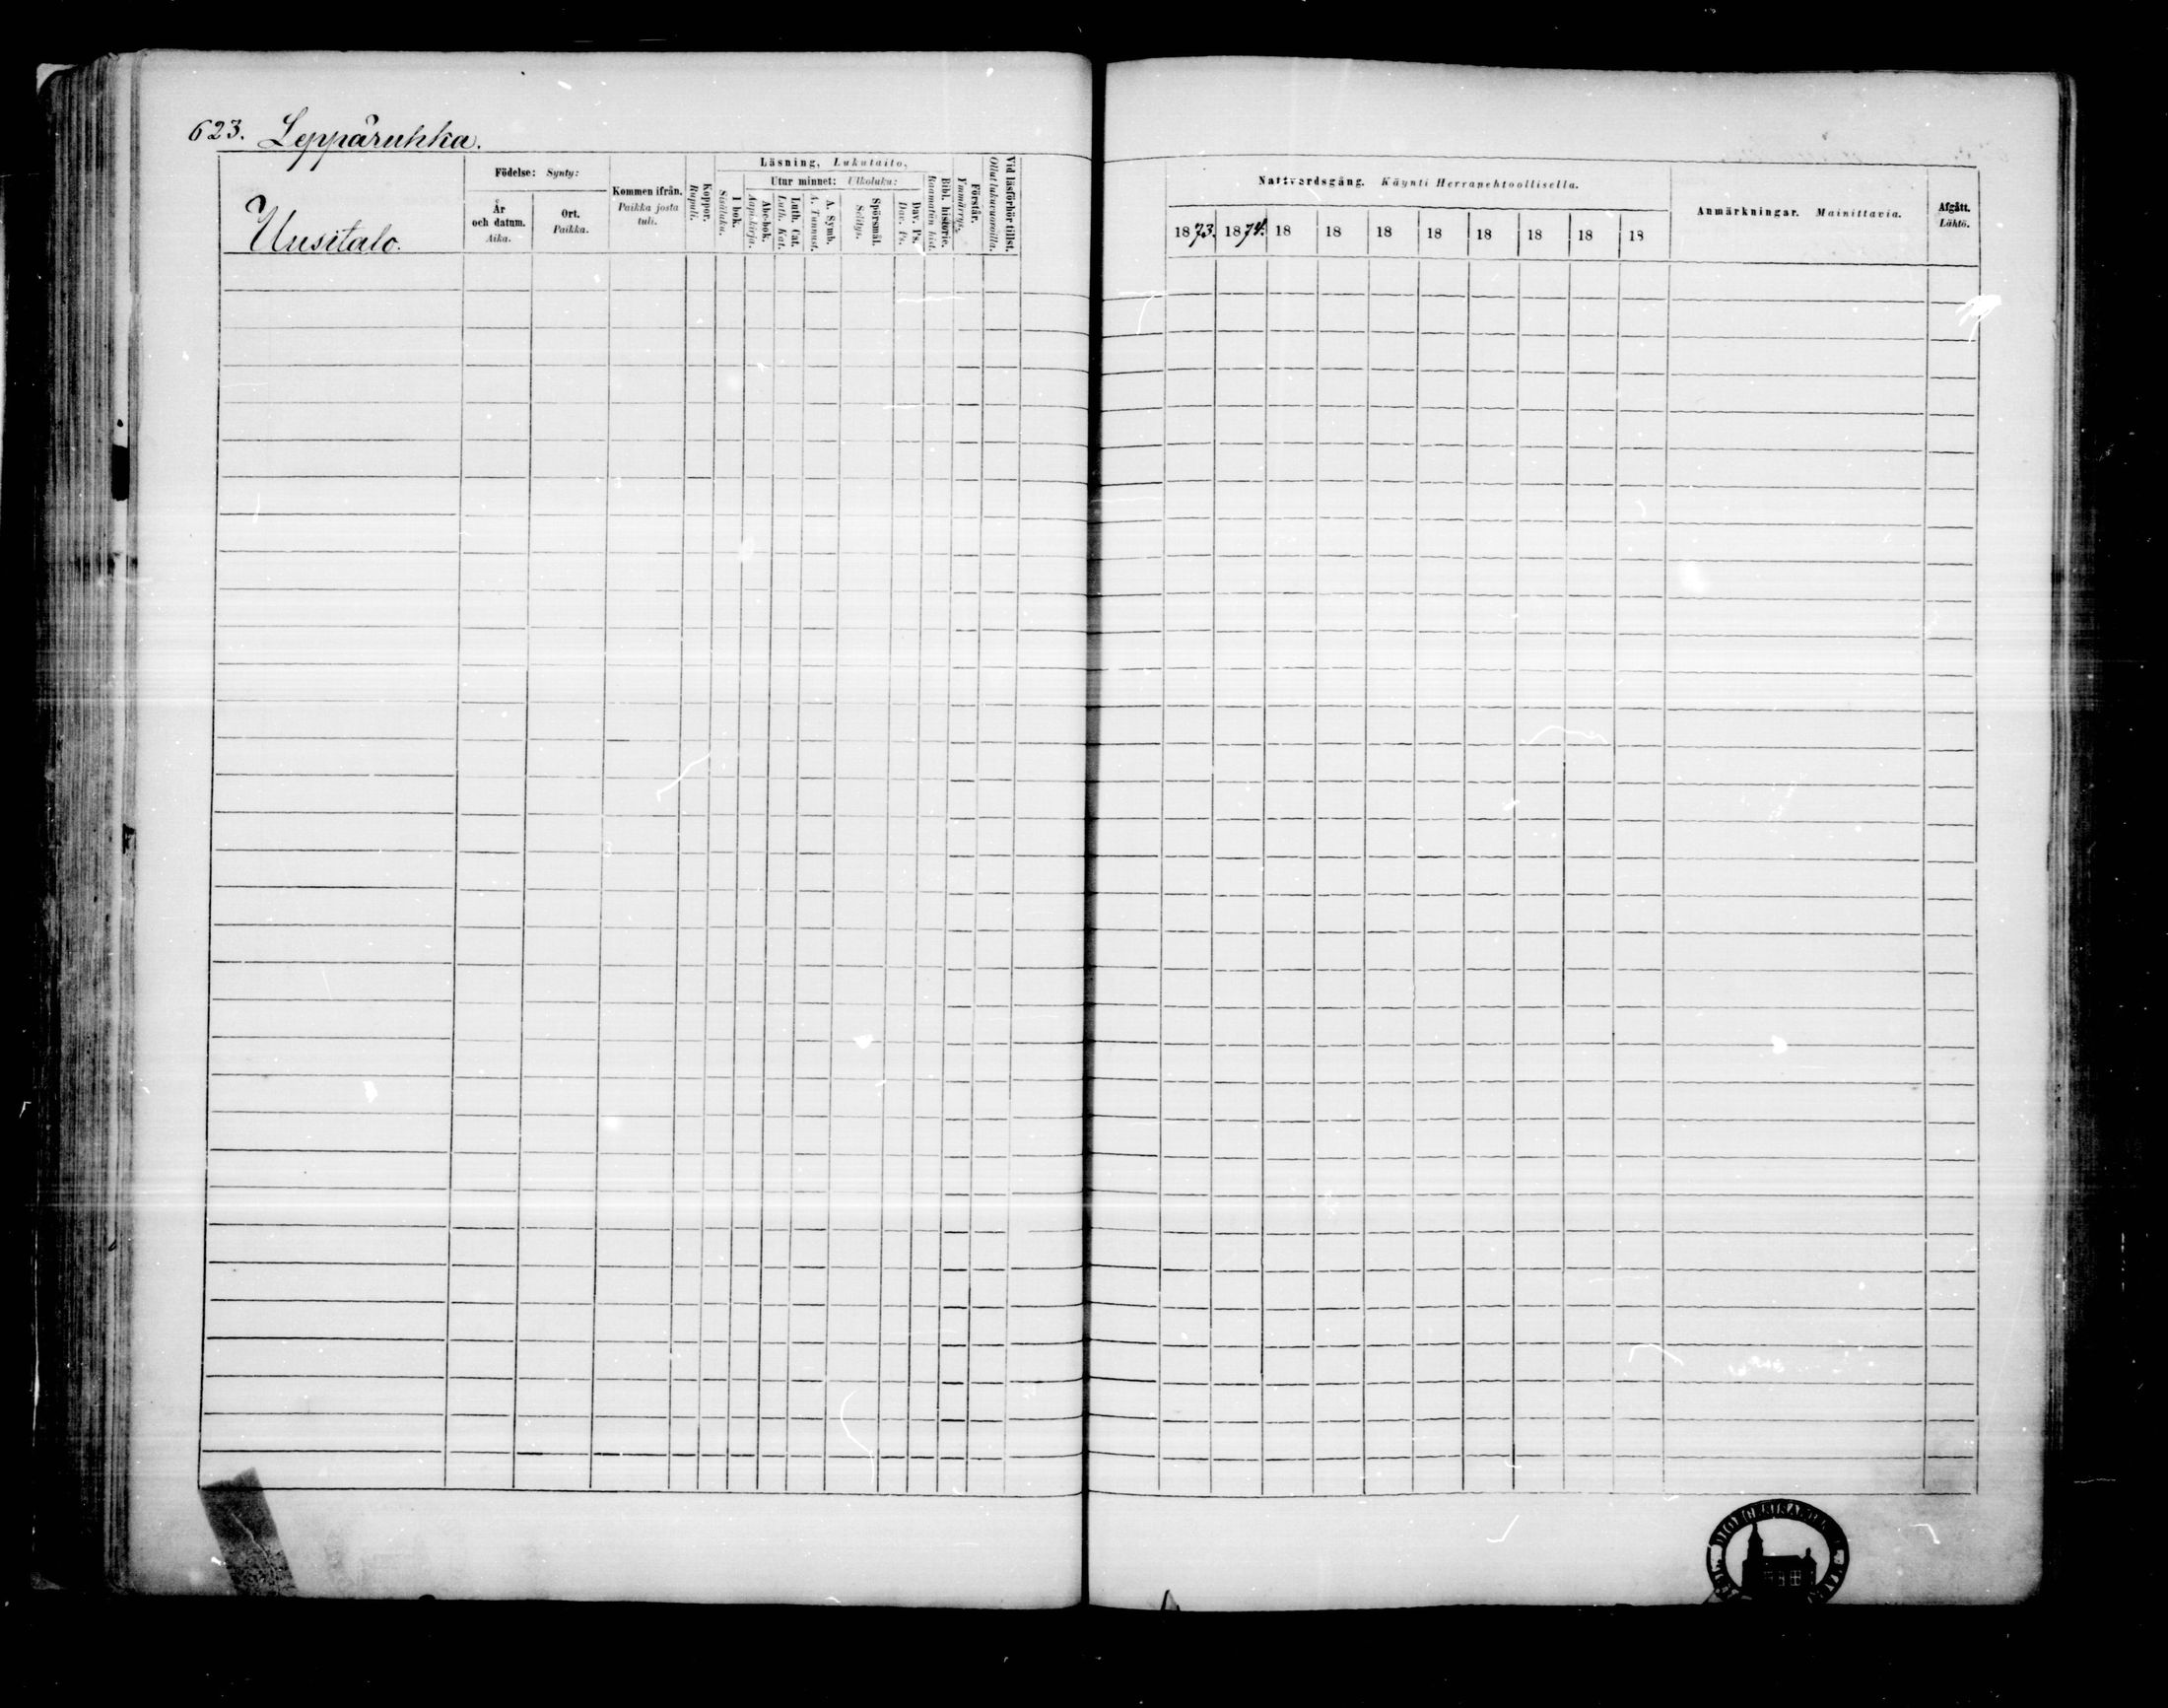 623. Leppäruhka.
Uusitalo.
Födelse: Synty:
År och datum. Aika.
Ort. Paikka.
Kommen ifrån. Paikka josta tuli.
Koppor. Rupuli.
Läsning, Lukutaito,
I bok. Sisäluku.
Utur minnet: Ulkoluku:
Abc-bok. Aapiskirja.
Luth. Cat. Luth. Kat.
A. Symb. A. Tunnust.
Spörsmål. Selitys.
Dav. Ps. Dav. Ps.
Bibl. historie. Raamatun hist.
Förstår. Ymmärrys.
Vid läsförhör tillst. Ollut lukuvuoroilla.
Nattvardsgång. Käynti Herranehtoollisella.
1873. 1874. 18 18 18 18 18 18 18 18
Anmärkningar. Mainittavia.
Afgått. Lähtö.